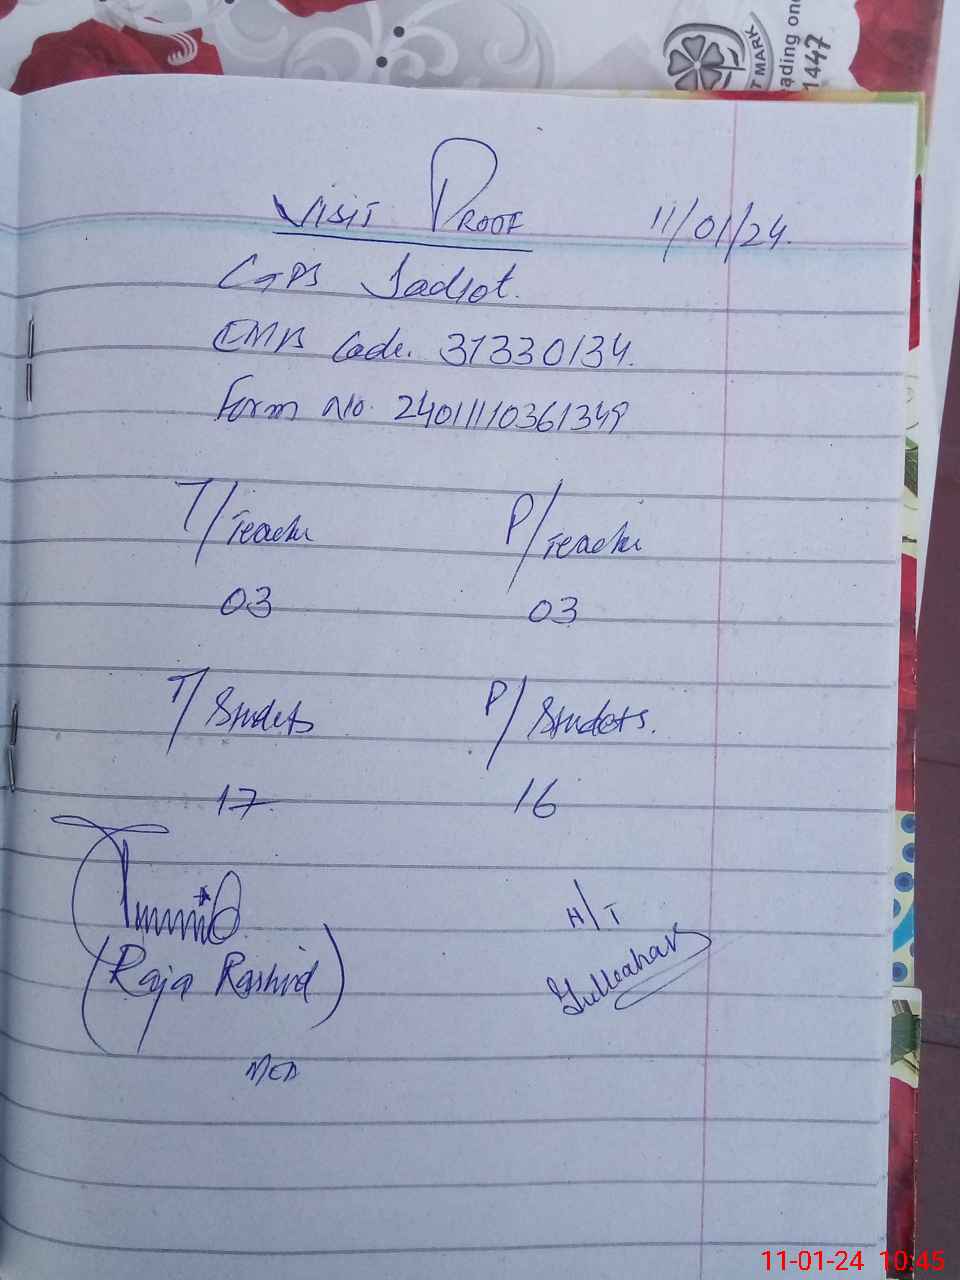 T MARK
ading on
1447
VISIT PROOF 11/01/24.
GGPS Jadjot.
EMIS Code. 31330134.
Form No. 24011110361349
T/Teacher P/Teacher
03 03
T/Studets P/Studets.
17 16
(Raja Rashid)
H/T
MEA
11-01-24 10:45